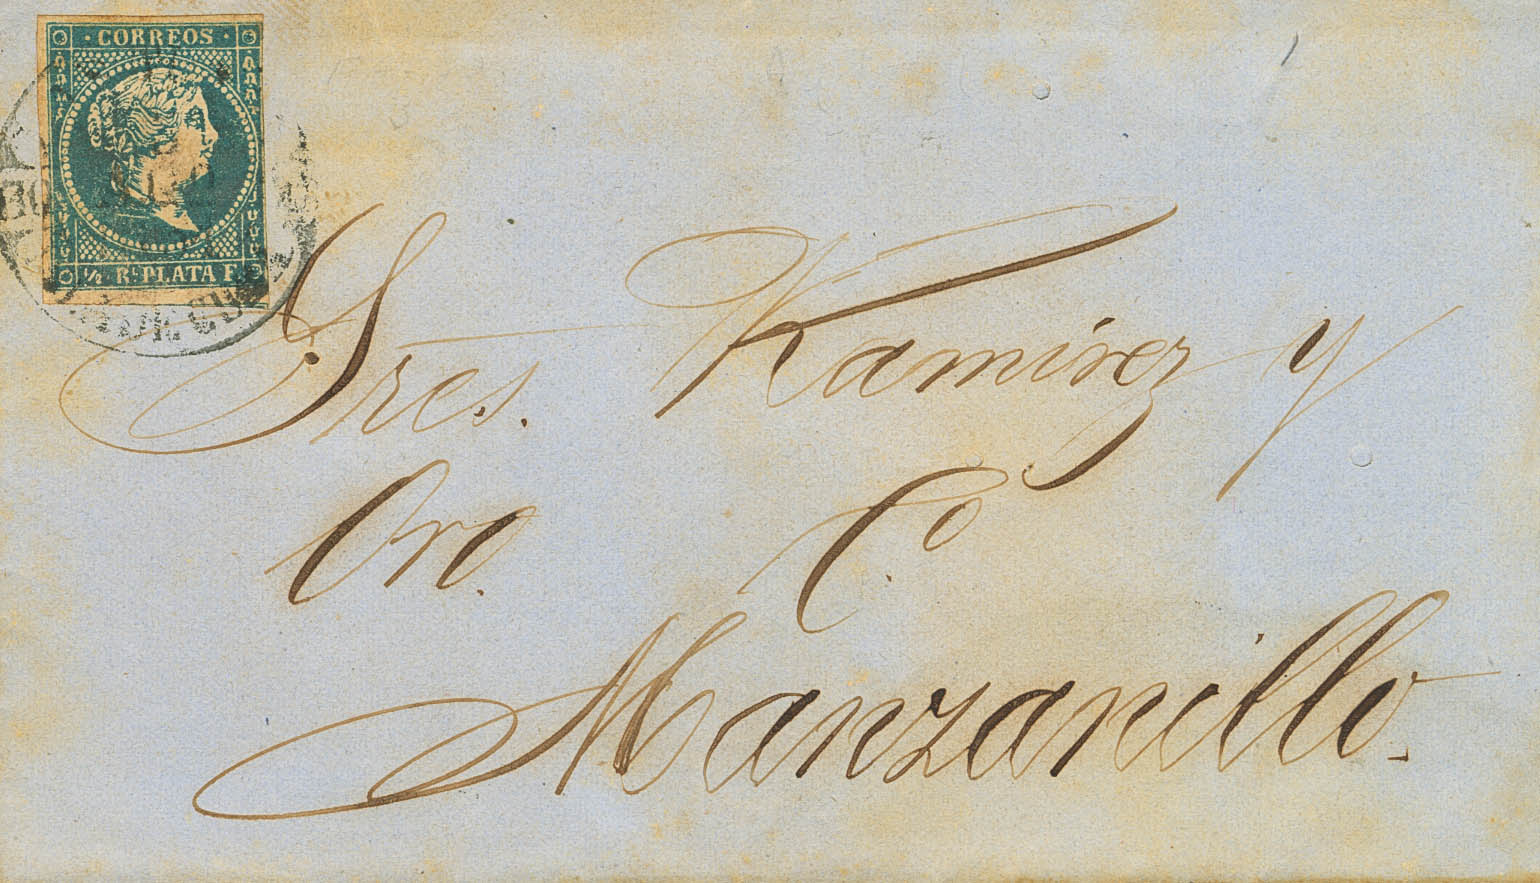 · CORREOS ·
½ Rˡ PLATA F.
Sres. Ramirez y
Oro. Cº.
Manzanillo.